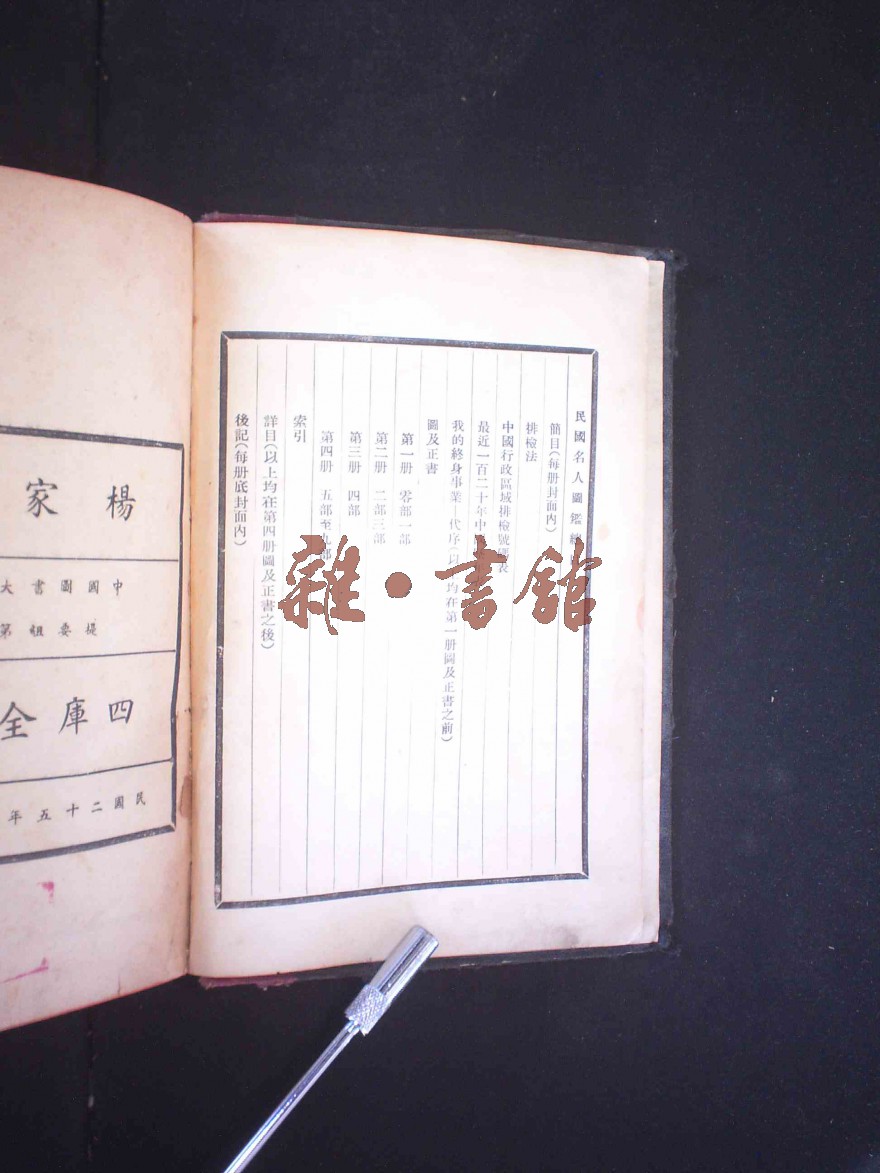 民國名人圖鑑
簡目(每册封面内)
排檢法
中國行政區域排檢號
最近一百二十年中
我的終身事業—代序(以 均在第一册圖及正書之前)
圖及正書
第一册 零部一部
第二册 二部三部
第三册 四部
第四册 五部至九部
索引
詳目(以上均在第四册圖及正書之後)
後記(每册底封面内)
楊家
中國圖書大
提要 第
四庫全
民國二十五年
雜·書館